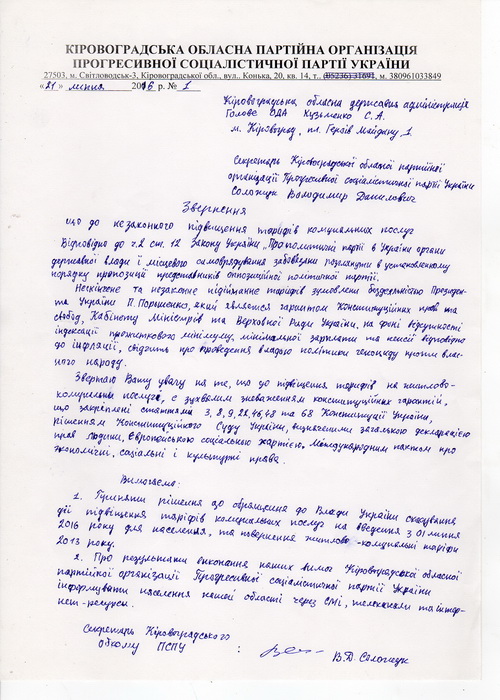 КІРОВОГРАДСЬКА ОБЛАСНА ПАРТІЙНА ОРГАНІЗАЦІЯ
ПРОГРЕСИВНОЇ СОЦІАЛІСТИЧНОЇ ПАРТІЇ УКРАЇНИ
27503, м. Світловодськ-3, Кіровоградської обл., вул.. Конька, 20, кв. 14, т., м. 380961033849
«21» липня 2016 р. № 1
Кіровоградська обласна державна адміністрація
Голове ОДА Кузьменко С. А.
м. Кіровоград, пл. Героїв Майдану, 1
Секретарь Кіровоградської обласної партійної
організації Прогресивної соціалістичної партії України
Володимир Данилович
Звернення
що до незаконного підвищення тарифів комунальних послуг
Відповідно до ч.2 ст. 12 Закону України „Про політичні партії в Україні органи
державної влади і місцевого самоврядування забов'язані розглянути в установленому
порядку пропозиції представників оппозиційної політичної партії.
Нескінчене та незаконе підіймання тарифів зумовлени бездеяльністю Президен-
та України П. Порошенко, який является гарантом Конституційних прав та
свобод, Кабінету Міністрів та Верховної Ради України, на фоні відсутності
індексації прожиткового мінімуму, мінімальної зарплати та пенсії відповідно
до інфляції, свідчить про проведення владою політики геноциду проти влас-
ного народу.
Звертаю Вашу увагу на те, що до підвищення тарифів на житлово-
комунальни послуги, є зухвалим зневаженням конституційних гарантій,
що закреплені статтями 3, 8, 9, 22, 46, 48 та 68 Конституції України,
рішенням Конституційного Суду України, визначеними загальною декларацією
прав людини, Європейською соціальною хартією, Міжнародним пактом про
економічні, соціальні і культурні права.
Вимогаємо:
1. Прийняти рішення що обращения до Влади України скасування
дії підвищення таріфів комунальних послуг на введення з 01 липня
2016 року для населення, та повернення житлово-комунальні таріфи
2013 року.
2. Про результати виконання наших вимог Кіровоградської обласної
партійної організації Прогресивної соціалістичної партії України
інформувати населення нашої області через СМІ, телеканали та інтер-
нет-ресурси.
Секретарь Кіровоградського
Обкому ПСПУ
В.Д.